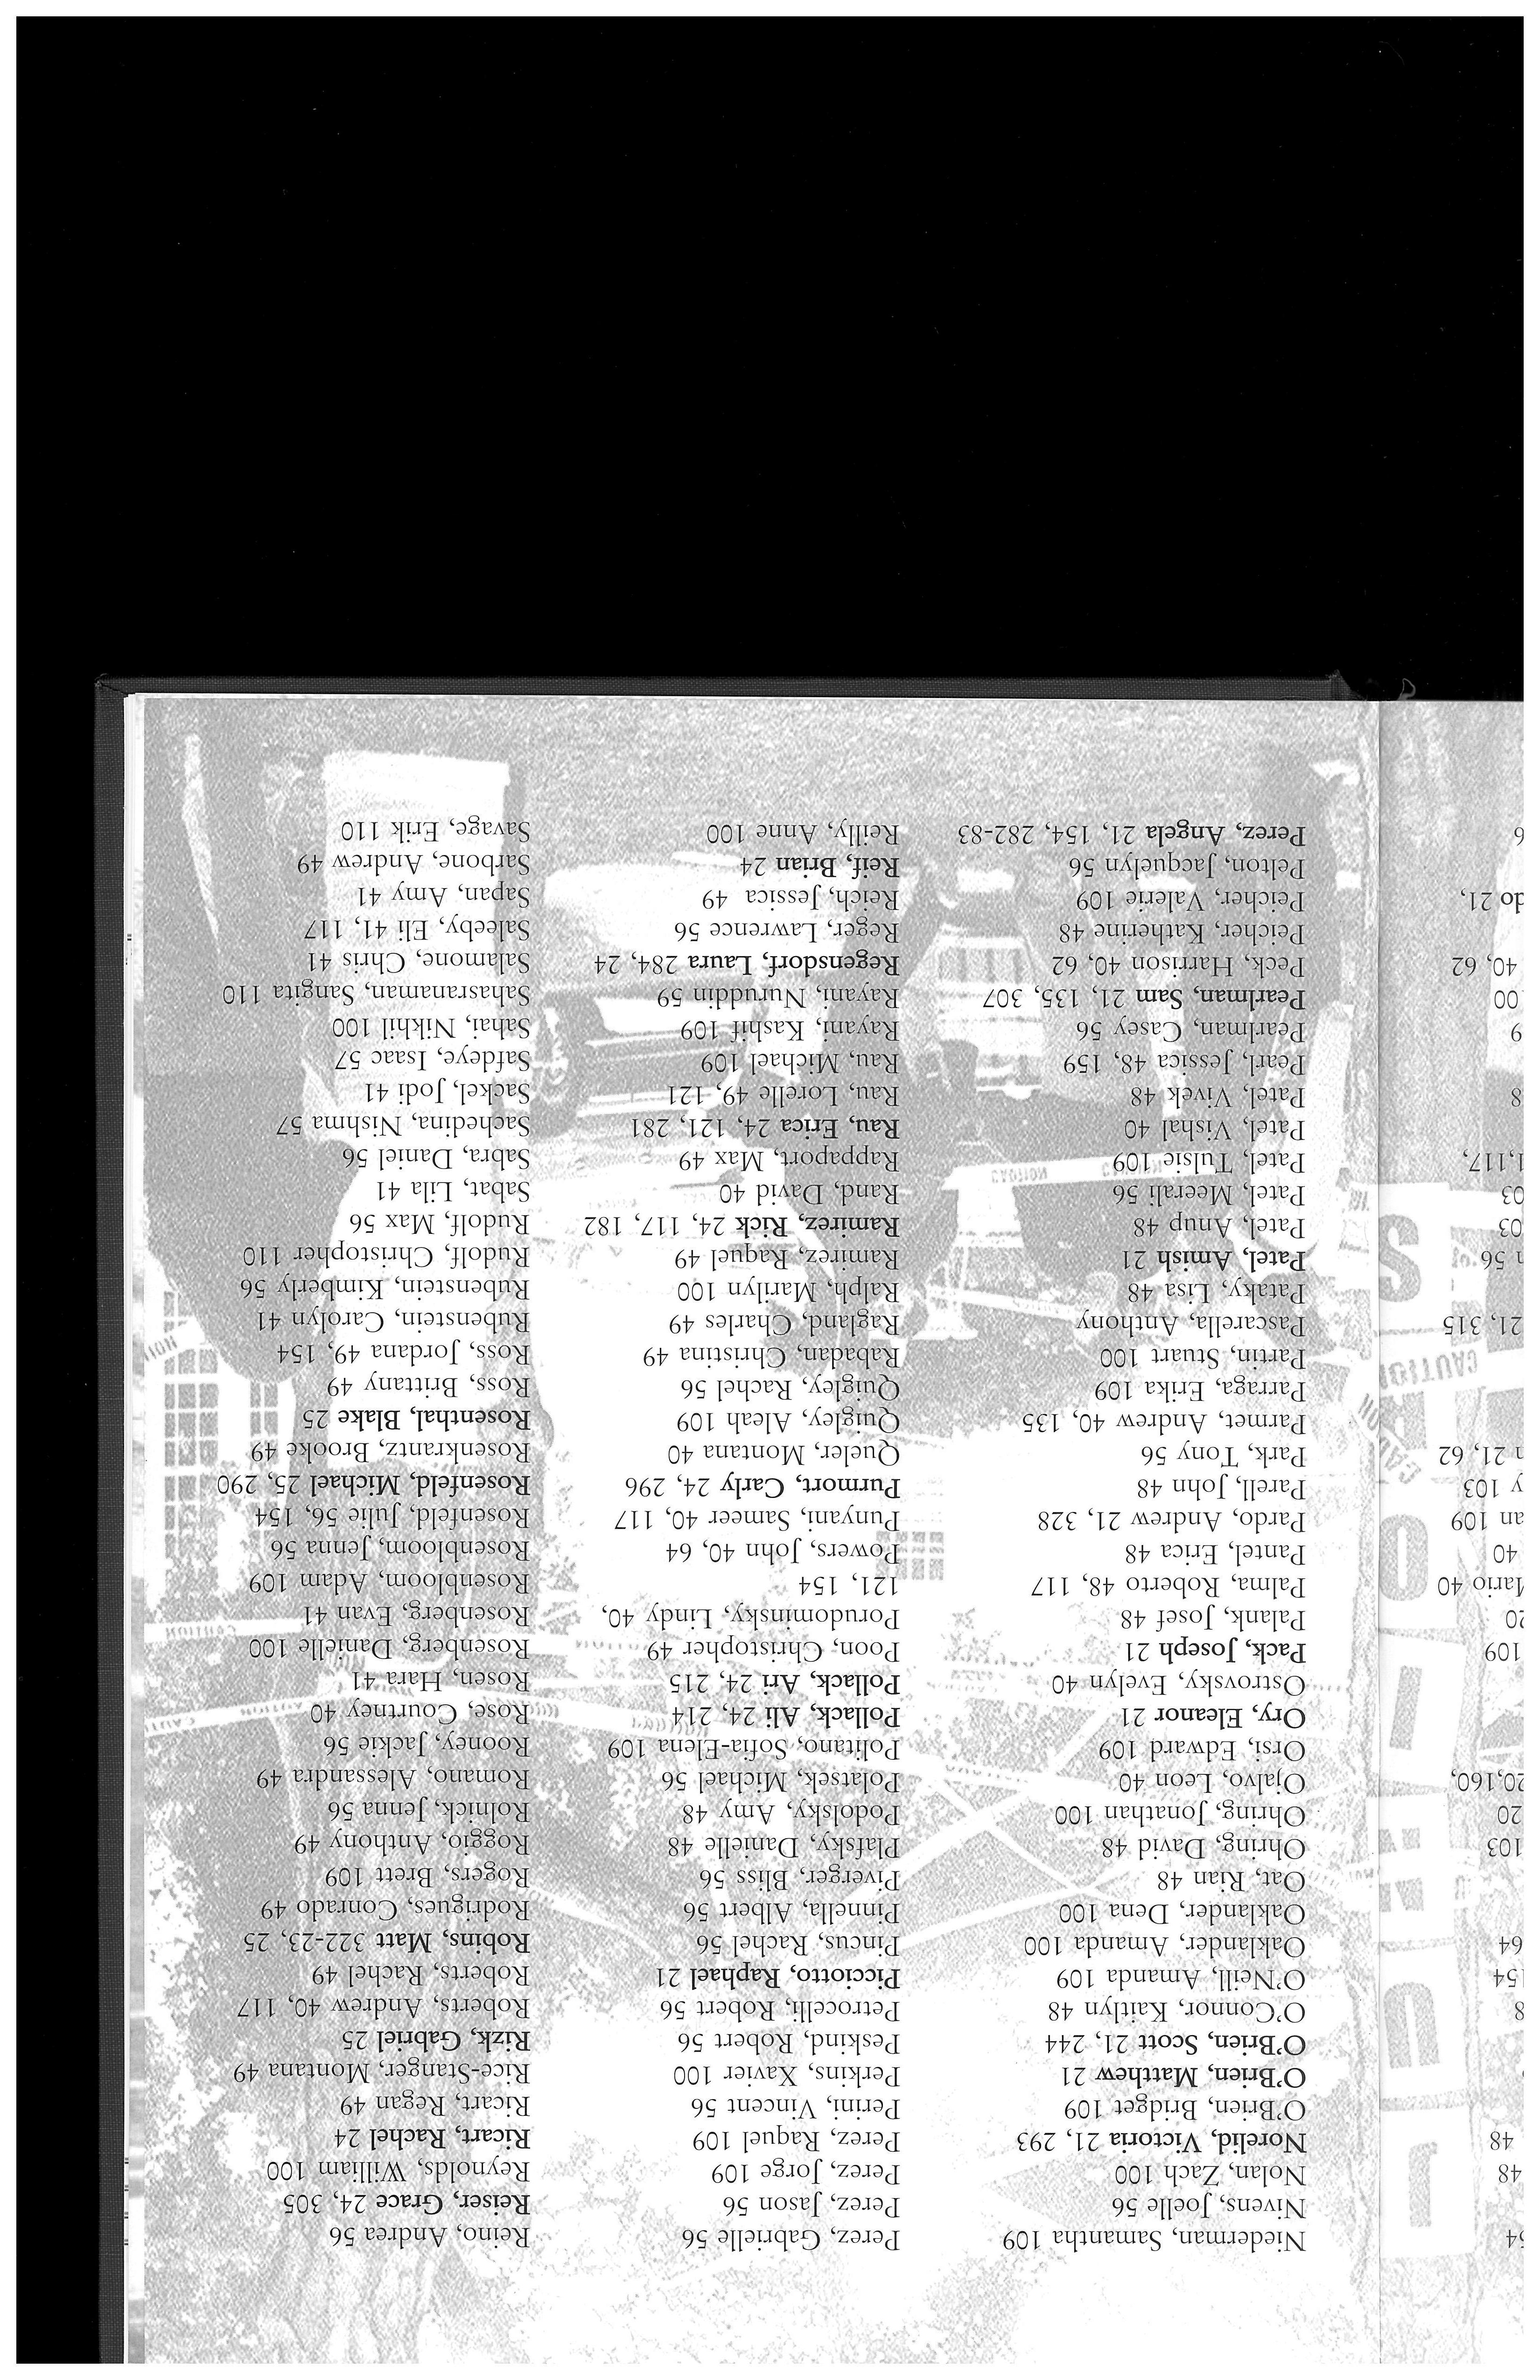 54
48
48
8
154
64
103
20
20,160,
109
20
Mario 40
40
an 109
y 103
n 21, 62
CAUTION
21, 315
n 56
03
03
1,117,
8
9
00
40, 62
do 21,
6
Niederman, Samantha 109
Nivens, Joelle 56
Nolan, Zach 100
Norelid, Victoria 21, 293
O'Brien, Bridget 109
O'Brien, Matthew 21
O'Brien, Scott 21, 244
O'Connor, Kaitlyn 48
O'Neill, Amanda 109
Oaklander, Amanda 100
Oaklander, Dena 100
Oat, Rian 48
Ohring, David 48
Ohring, Jonathan 100
Ojalvo, Leon 40
Orsi, Edward 109
Ory, Eleanor 21
Ostrovsky, Evelyn 40
Pack, Joseph 21
Palank, Josef 48
Palma, Roberto 48, 117
Pantel, Erica 48
Pardo, Andrew 21, 328
Parell, John 48
Park, Tony 56
Parmet, Andrew 40, 135
Parraga, Erika 109
Partin, Stuart 100
Pascarella, Anthony
Pataky, Lisa 48
Patel, Amish 21
Patel, Anup 48
Patel, Meerali 56
Patel, Tulsie 109
Patel, Vishal 40
Patel, Vivek 48
Pearl, Jessica 48, 159
Pearlman, Casey 56
Pearlman, Sam 21, 135, 307
Peck, Harrison 40, 62
Peicher, Katherine 48
Peicher, Valerie 109
Pelton, Jacquelyn 56
Perez, Angela 21, 154, 282-83
Perez, Gabrielle 56
Perez, Jason 56
Perez, Jorge 109
Perez, Raquel 109
Perini, Vincent 56
Perkins, Xavier 100
Peskind, Robert 56
Petrocelli, Robert 56
Picciotto, Raphael 21
Pincus, Rachel 56
Pinnella, Albert 56
Piverger, Bliss 56
Plafsky, Danielle 48
Podolsky, Amy 48
Polatsek, Michael 56
Politano, Sofia-Elena 109
Pollack, Ali 24, 214
Pollack, Ari 24, 215
Poon, Christopher 49
Porudominsky, Lindy 40,
121, 154
Powers, John 40, 64
Punyani, Sameer 40, 117
Purmort, Carly 24, 296
Queler, Montana 40
Quigley, Aleah 109
Quigley, Rachel 56
Rabadan, Christina 49
Ragland, Charles 49
Ralph, Marilyn 100
Ramirez, Raquel 49
Ramirez, Rick 24, 117, 182
Rand, David 40
Rappaport, Max 49
Rau, Erica 24, 121, 281
Rau, Lorelle 49, 121
Rau, Michael 109
Rayani, Kashif 109
Rayani, Nuruddin 59
Regensdorf, Laura 284, 24
Reger, Lawrence 56
Reich, Jessica 49
Reif, Brian 24
Reilly, Anne 100
Reino, Andrea 56
Reiser, Grace 24, 305
Reynolds, William 100
Ricart, Rachel 24
Ricart, Regan 49
Rice-Stanger, Montana 49
Rizk, Gabriel 25
Roberts, Andrew 40, 117
Roberts, Rachel 49
Robins, Matt 322-23, 25
Rodrigues, Conrado 49
Rogers, Brett 109
Roggio, Anthony 49
Rolnick, Jenna 56
Romano, Alessandra 49
Rooney, Jackie 56
Rose, Courtney 40
Rosen, Hara 41
Rosenberg, Danielle 100
Rosenberg, Evan 41
Rosenbloom, Adam 109
Rosenbloom, Jenna 56
Rosenfeld, Julie 56, 154
Rosenfeld, Michael 25, 290
Rosenkrantz, Brooke 49
Rosenthal, Blake 25
Ross, Brittany 49
Ross, Jordana 49, 154
Rubenstein, Carolyn 41
Rubenstein, Kimberly 56
Rudolf, Christopher 110
Rudolf, Max 56
Sabat, Lila 41
Sabra, Daniel 56
Sachedina, Nishma 57
Sackel, Jodi 41
Safdeye, Isaac 57
Sahai, Nikhil 100
Sahasranaman, Sangita 110
Salamone, Chris 41
Saleeby, Eli 41, 117
Sapan, Amy 41
Sarbone, Andrew 49
Savage, Erik 110